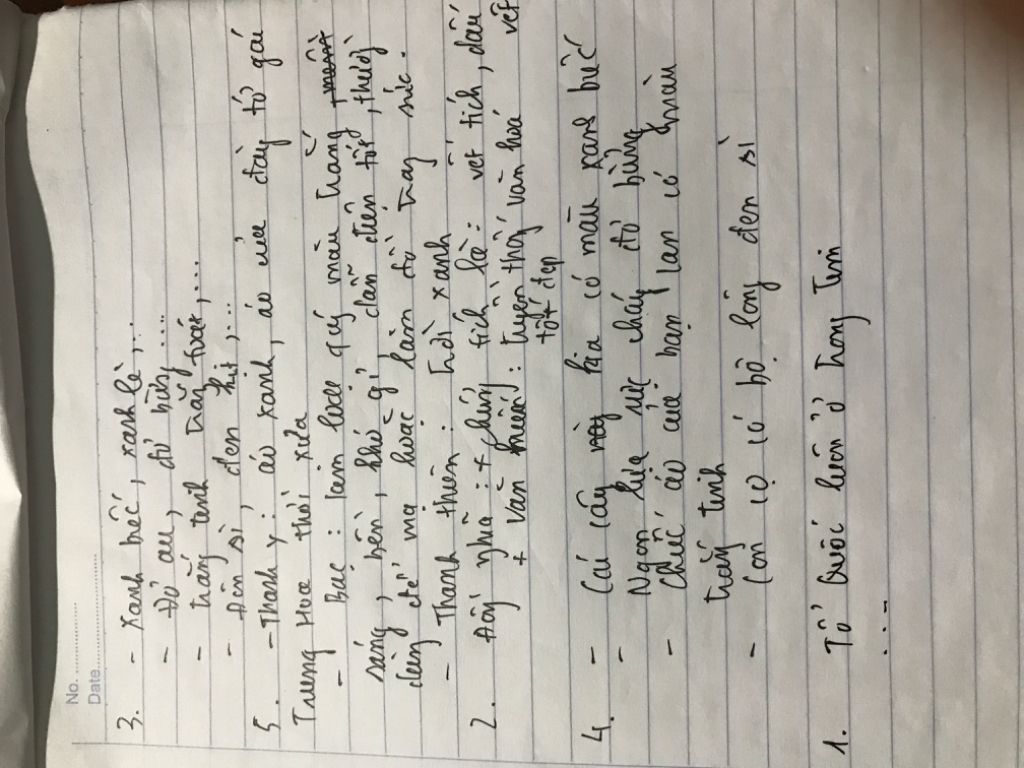 No. ..............
Date ..............
3. - Xanh biếc, xanh lè,...
- Đỏ au, đỏ bừng,...
- trắng tinh, trắng toát,...
- Đen sì, đen kịt,...
5. - Thanh y: áo xanh, áo của đầy tớ gái
Trung Hoa thời xưa
- Bạc: loại quý màu trắng
sáng, bền, khó gỉ, dẫn điện tốt, thường
dùng để mạ hoặc làm đồ trang sức.
- Thanh thiên: trời xanh
2. Đây nghĩa: + chứng tích là: vết tích, dấu vết
+ Văn hiến: truyền thống văn hoá
tốt đẹp
4. - Cái cây kia có màu xanh biếc
- Ngọn lửa rực cháy đỏ bừng
- Chiếc áo của bạn lan có màu
trắng tinh
- Con có bộ lông đen sì
1. Tổ Quốc luôn ở trong tim
...-